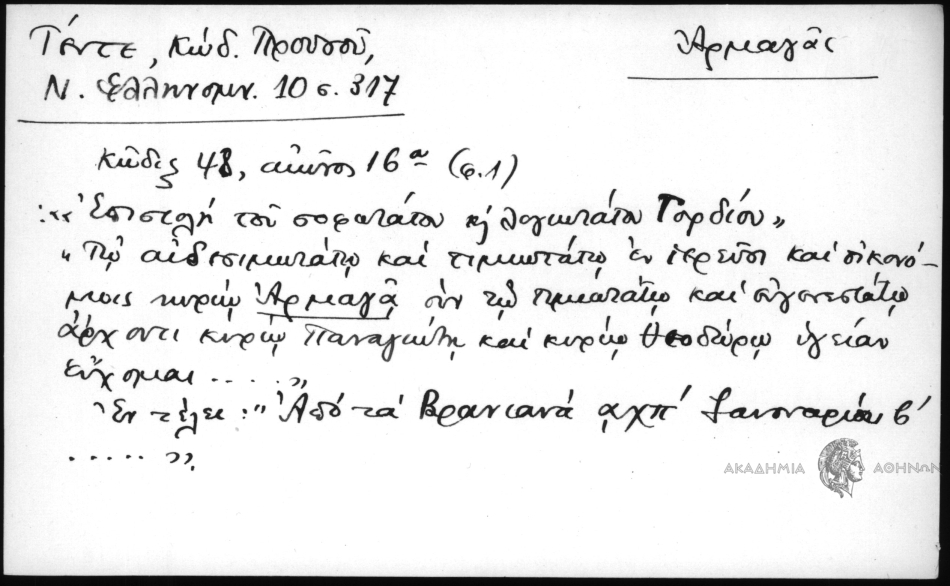 Γέντε, Κώδ. Προυσοῦ,
Ν. Ἑλληνομν. 10 σ. 317
Ἀρμαγᾶς
Κῶδιξ 48, αἰῶνος 16ᵃ (φ. 1)
: «Ἐπιστολὴ τοῦ σοφωτάτου κỳ λογιωτάτου Γορδίου»
«Τῷ αἰδεσιμωτάτῳ καὶ τιμιωτάτῳ ἐν ἱερεῦσι καὶ οἰκονό-
μοις κυρίῳ Ἀρμαγᾷ σὺν τῷ τιμιωτάτῳ καὶ εὐγενεστάτῳ
ἄρχοντι κυρίῳ Παναγιώτῃ καὶ κυρίῳ Θεοδώρῳ ὑγείαν
εὔχομαι ..... »
Ἐν τέλει: «Ἀπὸ τὰ Βρανιανά ͵αχπʹ Ἰαννουαρίου βʹ
..... »
ΑΚΑΔΗΜΙΑ ΑΘΗΝΩΝ